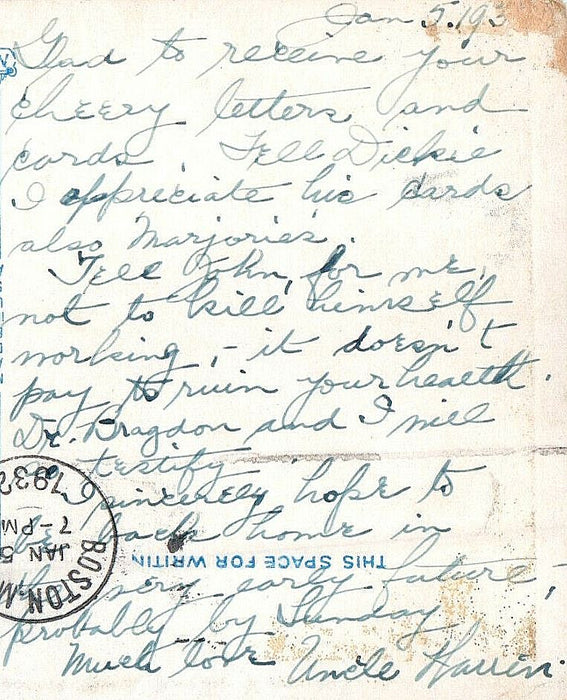 Jan 5. 193
Glad to receive your
cheery letters and
cards. Tell Dickie
I appreciate his cards
also Marjories.
Tell John, for me,
not to kill himself
working, - it doesn't
pay to ruin your health.
Dr. Bragdon and I will
so testify
I sincerely hope to
be back home in
the very early future,
probably by Sunday
Much love Uncle
THIS SPACE FOR WRITIN
BOSTON, M
JAN 5
7-PM
1932